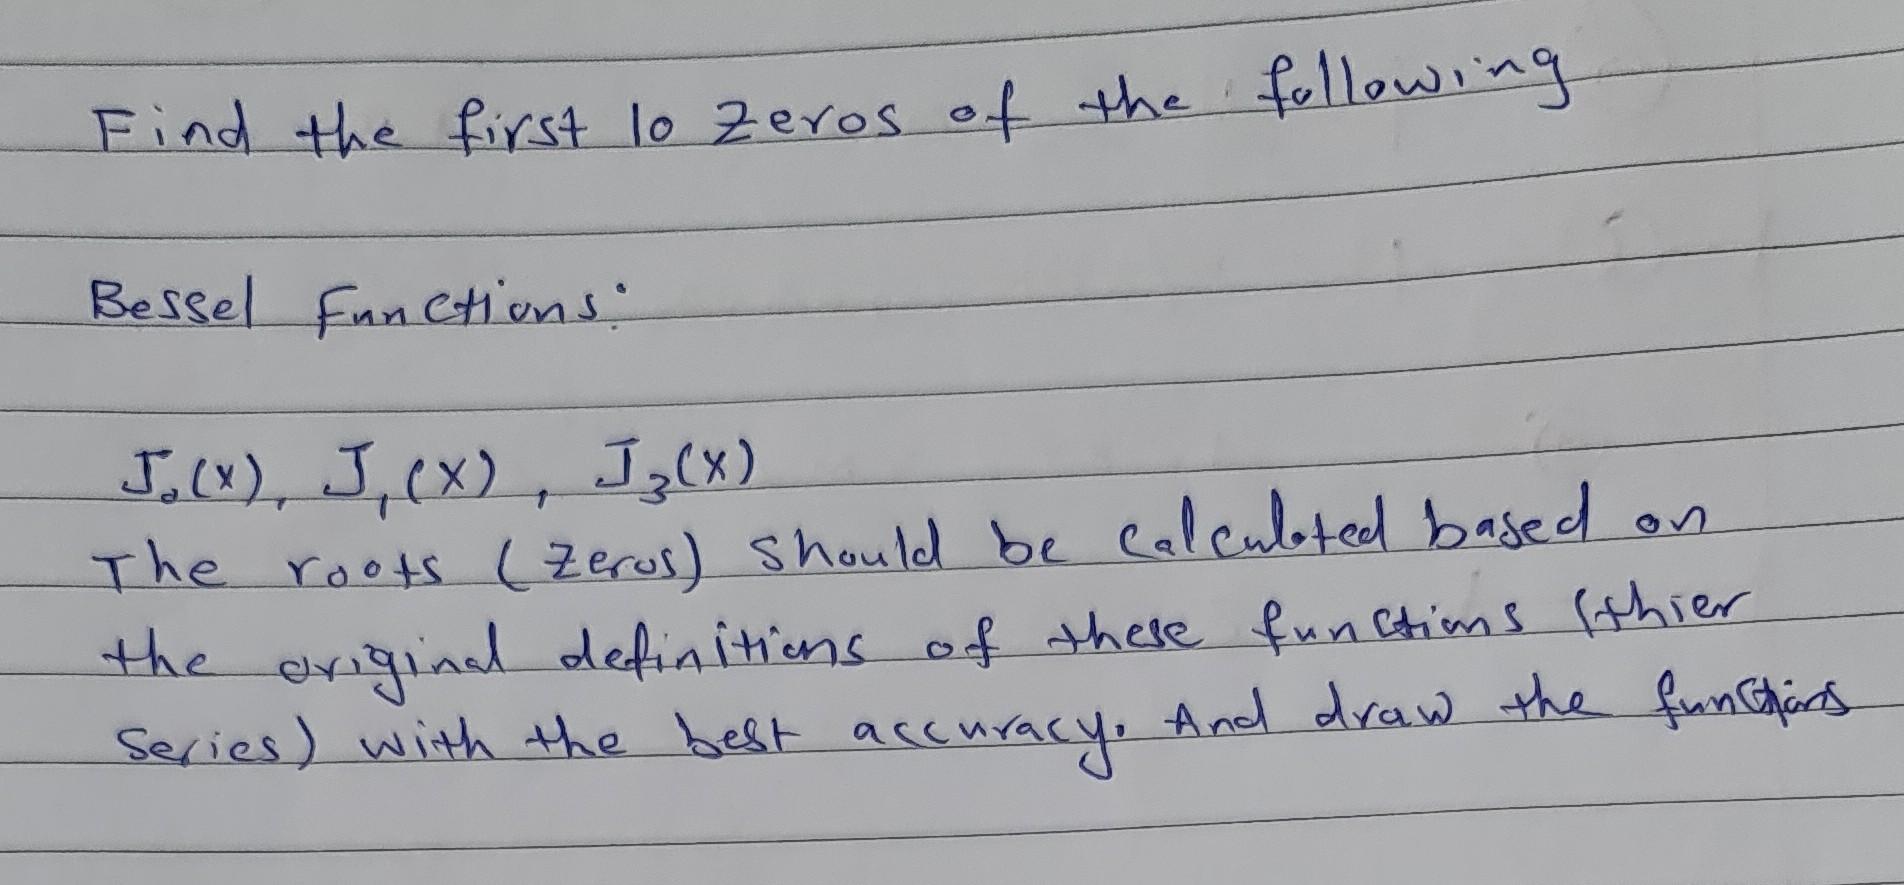 Find the first 10 zeros of the following
Bessel functions:
J₀(x), J₁(x), J₃(x)
The roots (zeros) should be calculated based on
the original definitions of these functions (thier
series) with the best accuracy. And draw the functions